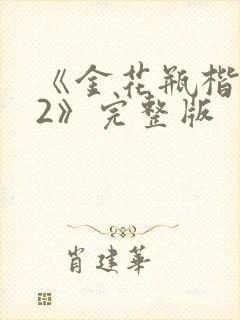 《金花瓶楷
2》完整版
肖建华